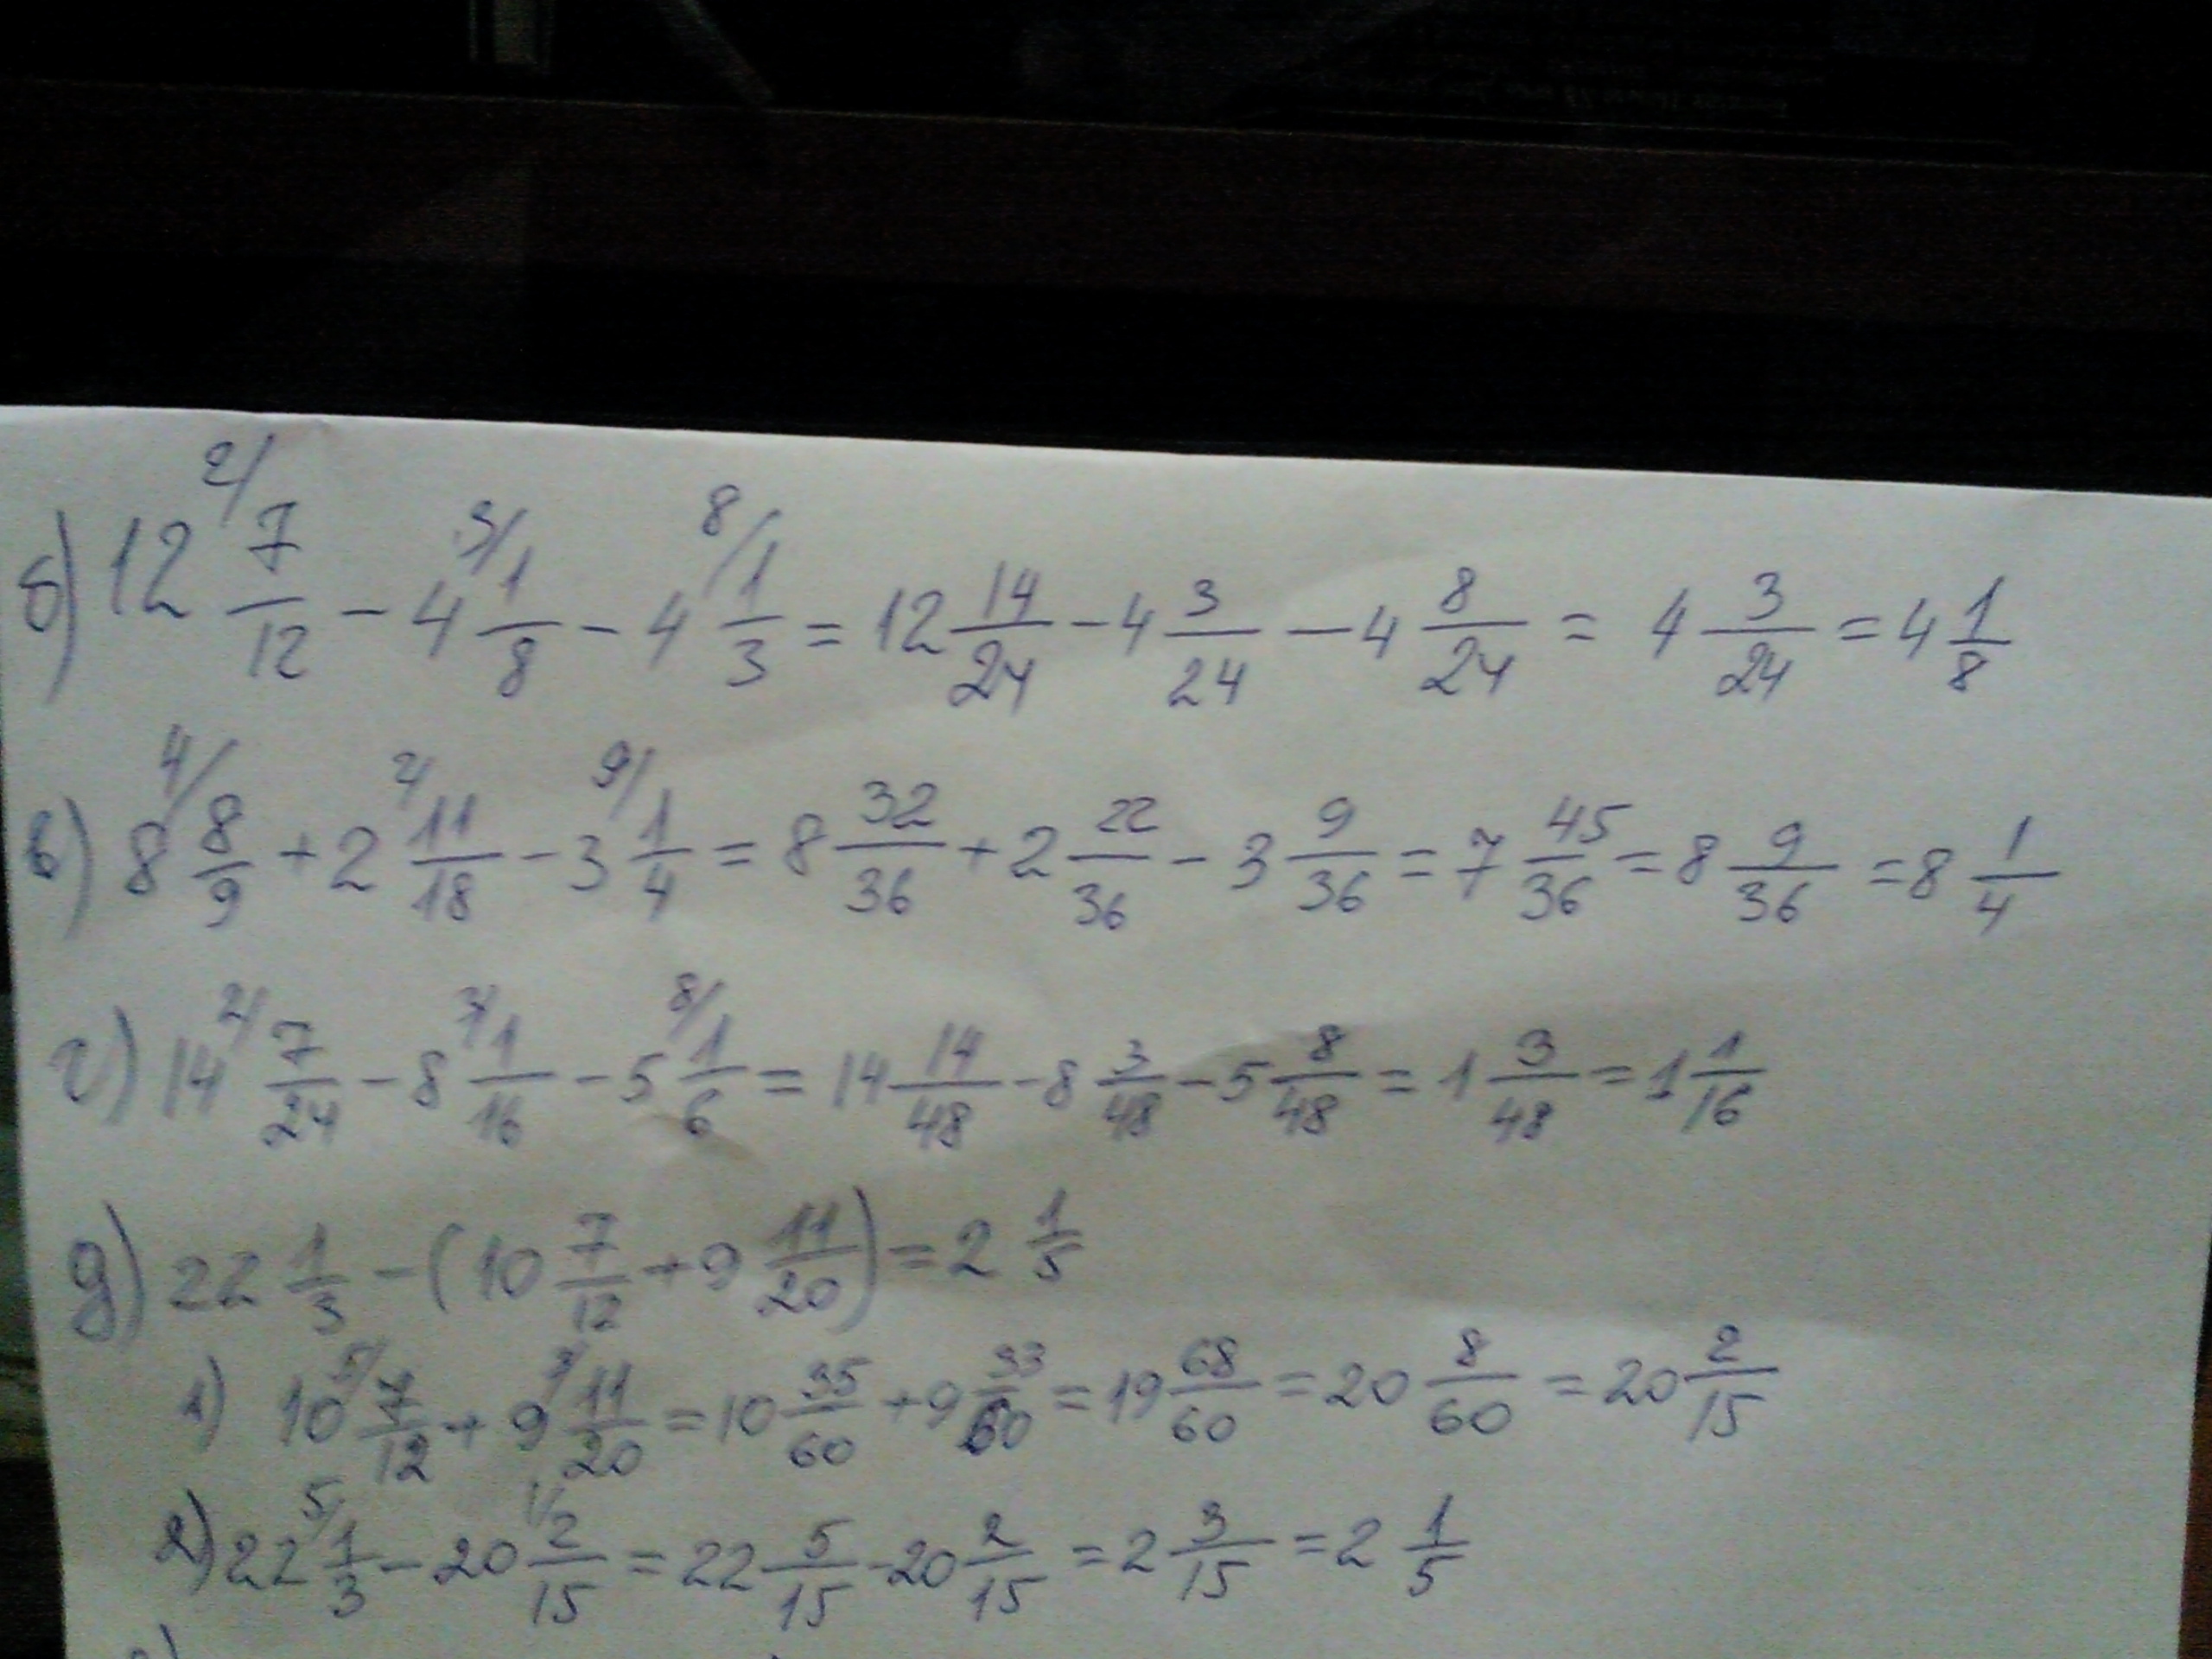 б) 12 2/ 7/12 - 4 3/ 1/8 - 4 8/ 1/3 = 12 14/24 - 4 3/24 - 4 8/24 = 4 3/24 = 4 1/8
в) 8 4/ 8/9 + 2 2/ 11/18 - 3 9/ 1/4 = 8 32/36 + 2 22/36 - 3 9/36 = 7 45/36 = 8 9/36 = 8 1/4
г) 14 2/ 7/24 - 8 3/ 1/16 - 5 8/ 1/6 = 14 14/48 - 8 3/48 - 5 8/48 = 1 3/48 = 1 1/16
д) 22 1/3 - (10 7/12 + 9 11/20) = 2 1/5
1) 10 5/ 7/12 + 9 3/ 11/20 = 10 35/60 + 9 33/60 = 19 68/60 = 20 8/60 = 20 2/15
2) 22 5/ 1/3 - 20 1/ 2/15 = 22 5/15 - 20 2/15 = 2 3/15 = 2 1/5